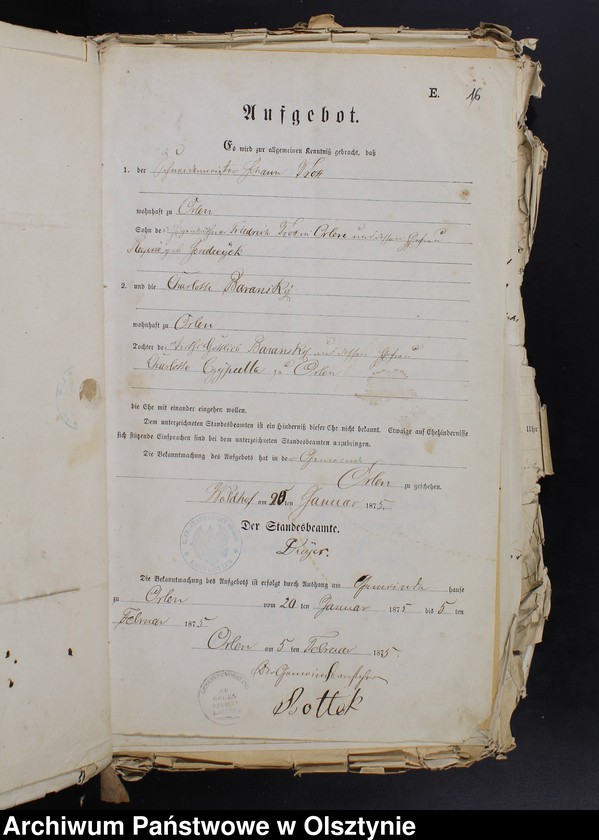 E. 16
Aufgebot.
Es wird zur allgemeinen Kenntniß gebracht, daß
1. der Schneidermeister Johann
wohnhaft zu Orlen
Sohn des Friedrich in Orlen und dessen Ehefrau
Regine geb
2. und die Charlotte Baransky
wohnhaft zu Orlen
Tochter des Gottlieb Baransky und dessen Ehefrau
Charlotte zu Orlen
die Ehe mit einander eingehen wollen.
Dem unterzeichneten Standesbeamten ist ein Hinderniß dieser Ehe nicht bekannt. Etwaige auf Ehehindernisse
sich stützende Einsprachen sind bei dem unterzeichneten Standesbeamten anzubringen.
Die Bekanntmachung des Aufgebots hat in der Gemeinde
Orlen zu geschehen.
Waldhof am 20ten Januar 1875.
Der Standesbeamte.
Die Bekanntmachung des Aufgebots ist erfolgt durch Aushang am Gemeinde hause
zu Orlen vom 20 ten Januar 1875 bis 5 ten
Februar 1875
Orlen am 5 ten Februar 1875.
Der Gemeindevorsteher
Rottek
Uhr
Archiwum Państwowe w Olsztynie